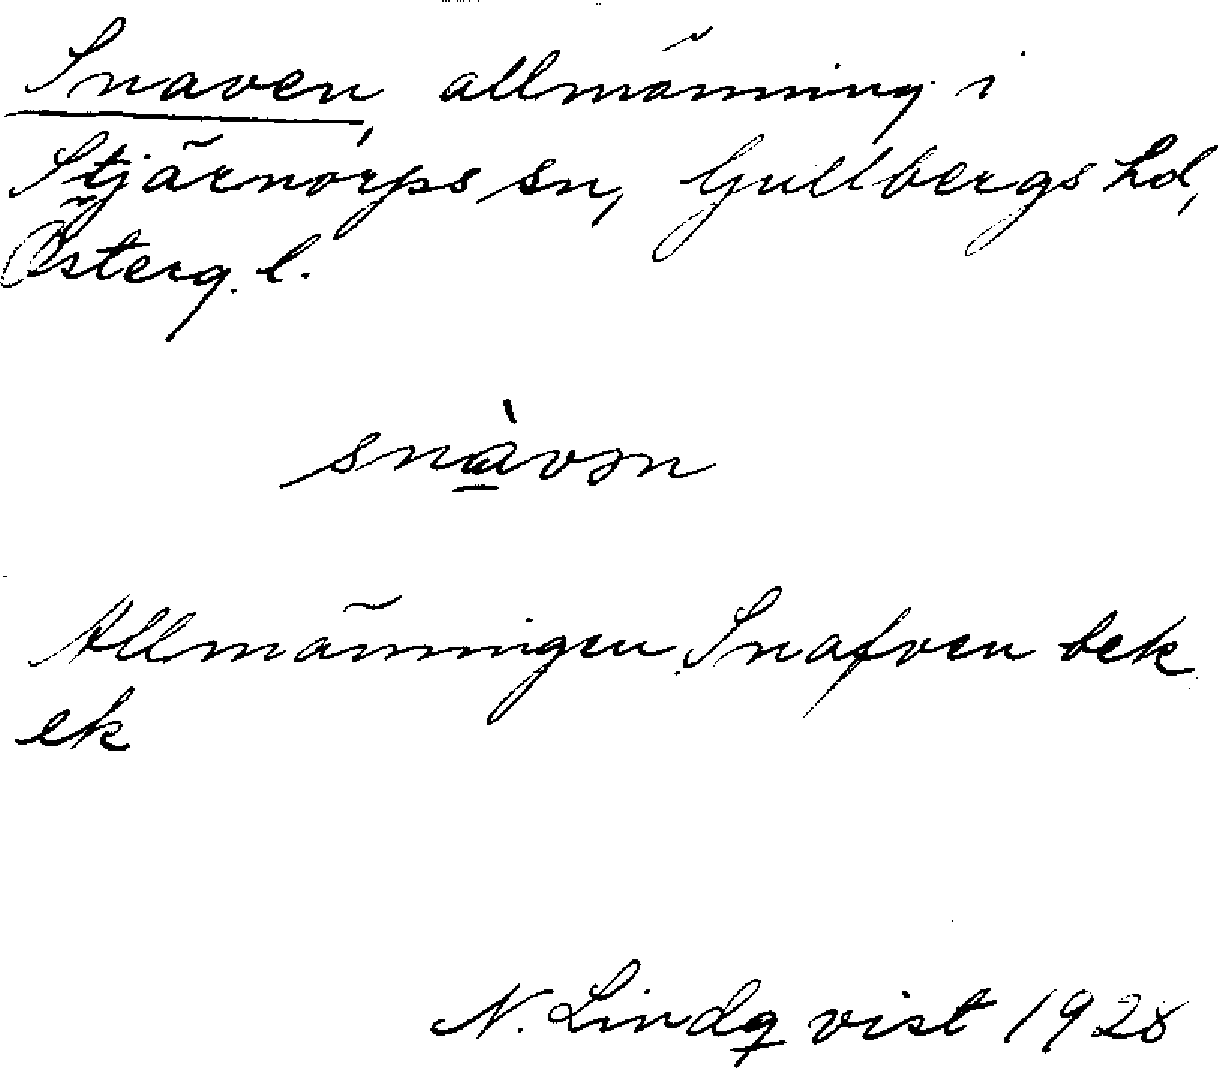 Snaven, allmänning i
Stjärnorps sn, Gullbergs hd,
Österg. l.
snàvən
Allmänningen Snafven bek
ek
N. Lindqvist 1928